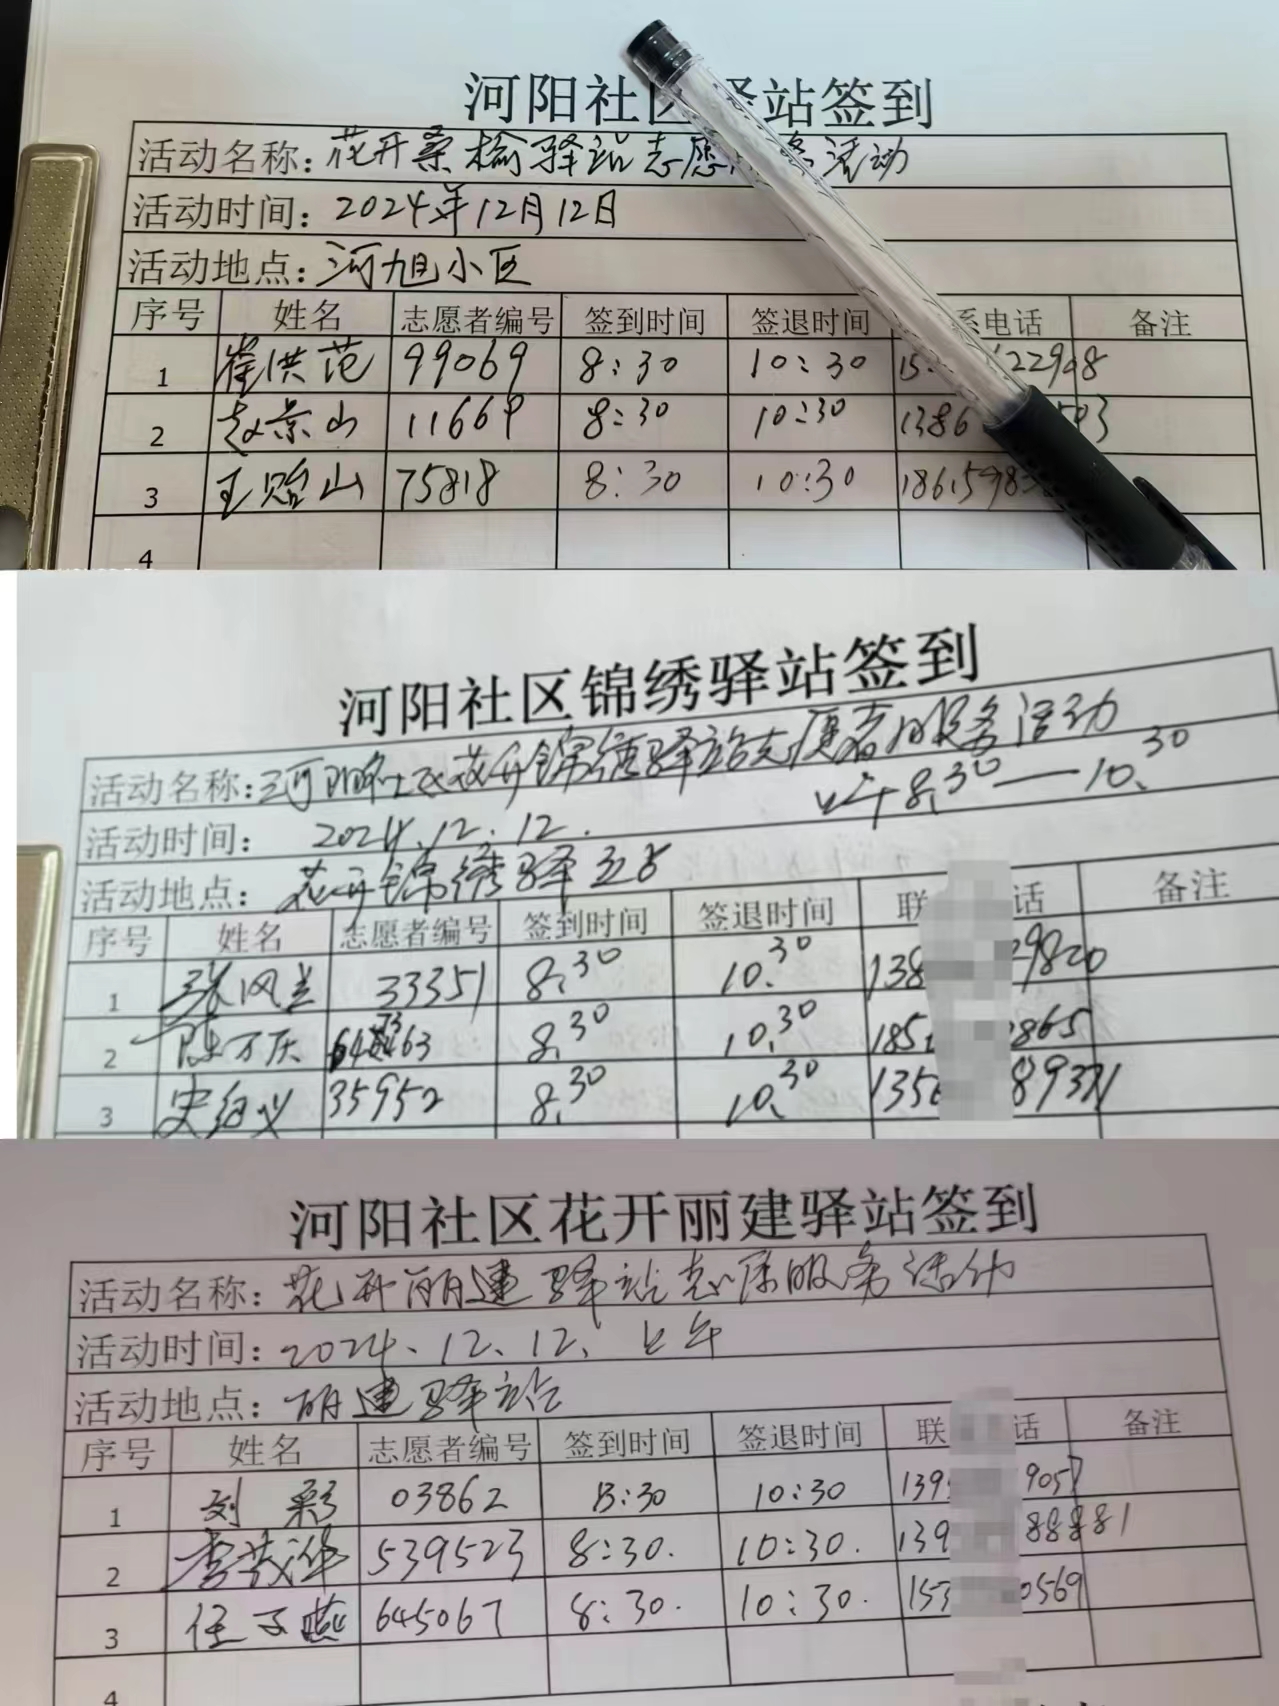 河阳社区驿站签到
活动名称：花开桑榆驿站志愿 活动
活动时间：2024年12月12日
活动地点：河旭小区
序号 姓名 志愿者编号 签到时间 签退时间 系电话 备注
1 崔洪范 99069 8:30 10:30 15 22908
2 赵景山 11669 8:30 10:30 1386 503
3 王贻山 75818 8:30 10:30 18615983
4
河阳社区锦绣驿站签到
活动名称：河阳社区花开锦绣驿站志愿者服务活动
活动时间：2024.12.12. 上午8:30—10:30
活动地点：花开锦绣驿站
序号 姓名 志愿者编号 签到时间 签退时间 联 话 备注
1 张风兰 33351 8:30 10:30 138 29820
2 陈万庆 8:30 10:30 185 865
3 史绍义 35952 8:30 10:30 135 89371
河阳社区花开丽建驿站签到
活动名称：花开丽建驿站志愿服务活动
活动时间：2024、12、12、上午
活动地点：丽建驿站
序号 姓名 志愿者编号 签到时间 签退时间 联 话 备注
1 刘彩 03862 8:30 10:30 139 9057
2 李茂华 539523 8:30. 10:30. 139 88881
3 任子燕 645067 8:30. 10:30. 153 0569
4